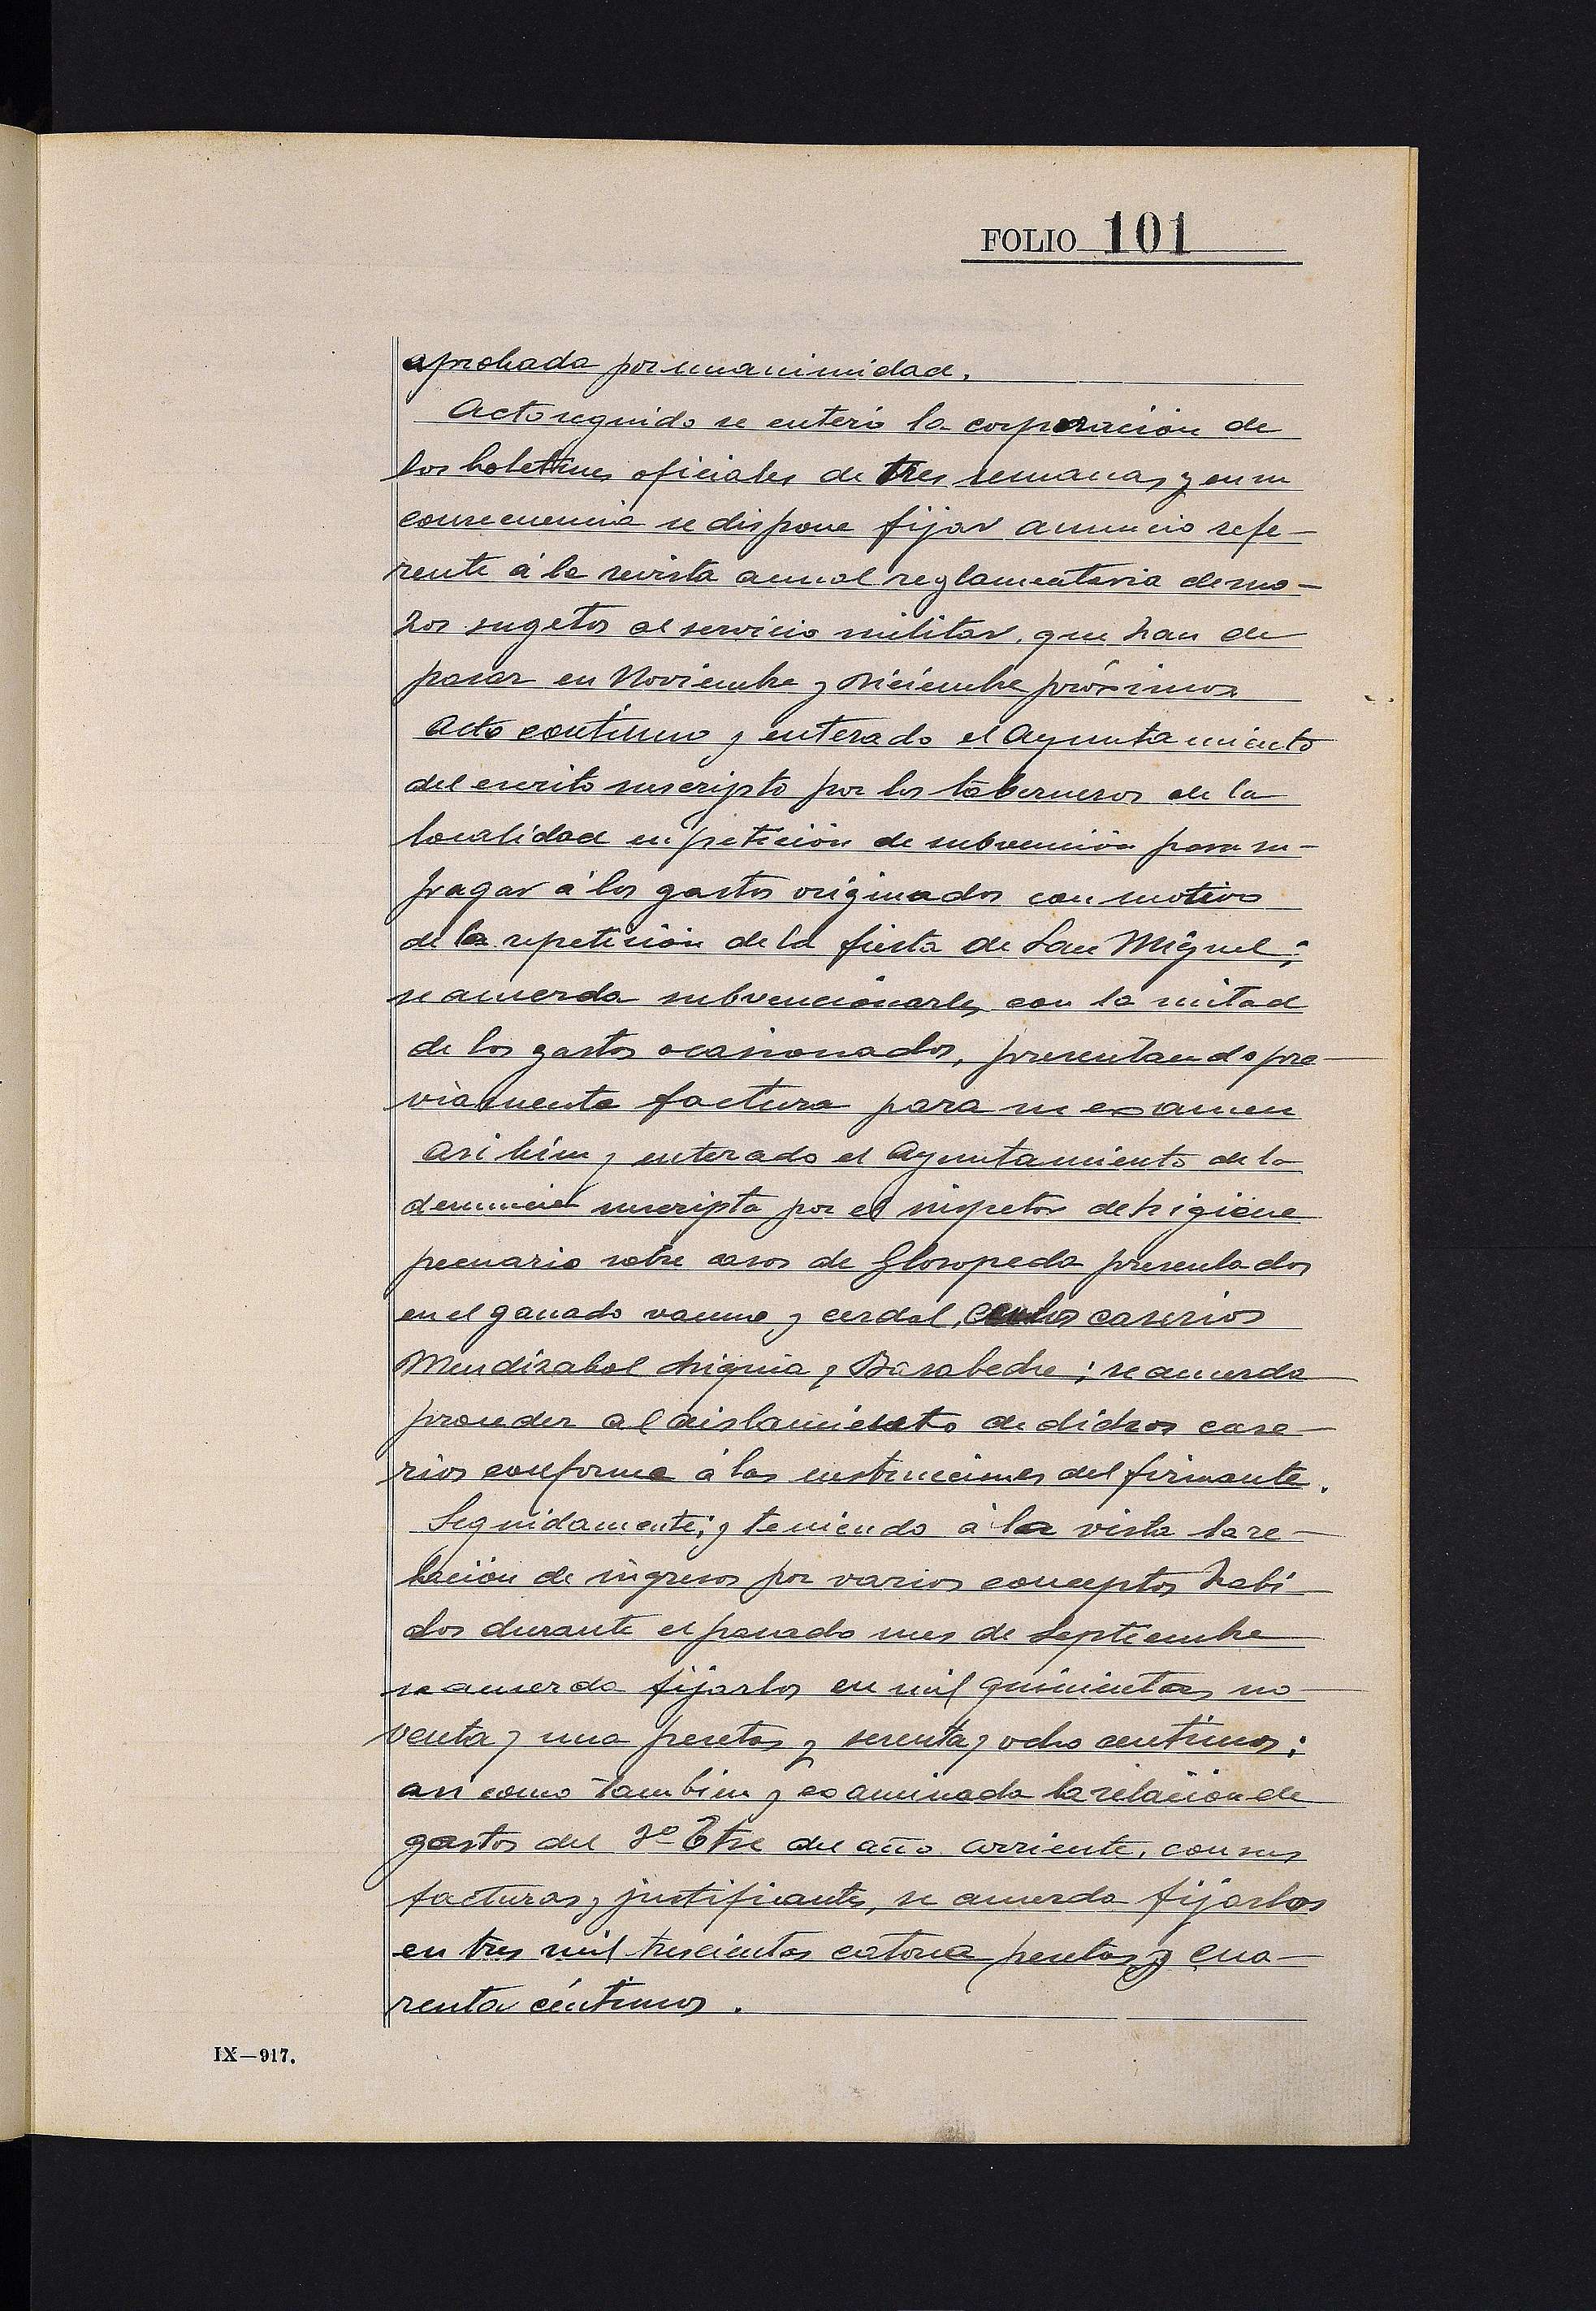 FOLIO 101
aprobada por unanimidad.
Acto seguido se enteró la corporación de
los boletines oficiales de tres semanas y en su
consecuencia se dispone fijar anuncio refe-
rente á la revista anual reglamentaria de mo-
zos sugetos al servicio militar, que han de
pasar en Noviembre y Diciembre próximos
Acto continuo y enterado el Ayuntamiento
del escrito suscripto por los taberneros de la
localidad en petición de subvención para su-
fragar á los gastos originados con motivo
de la repetición de la fiesta de San Miguel;
se acuerda subvencionarles con la mitad
de los gastos ocasionados, presentando pre-
viamente factura para su examen
Asi bien y enterado el Ayuntamiento de la
denuncia suscripta por el inspetor de higiene
pecuaria sobre casos de Glosopeda presentados
en el ganado vacuno y cerdal, en los caserios
Mendizabal y Basabeche; se acuerda
proceder al aislamiento de dichos case-
rios conforme á las instrucciones del firmante.
Seguidamente; y teniendo á la vista la re-
lación de ingresos por varios conceptos habi
dos durante el pasado mes de Septiembre
se acuerda fijarlos en mil quinientas no-
venta y una pesetas y ocho centimos;
asi como tambien y examinada la relacion de
gastos del 3º Ttre del año corriente, con sus
facturas y justificantes, se acuerda fijarlos
en tres mil trescientas catorce pesetas y cua-
renta céntimos.
IX—917.